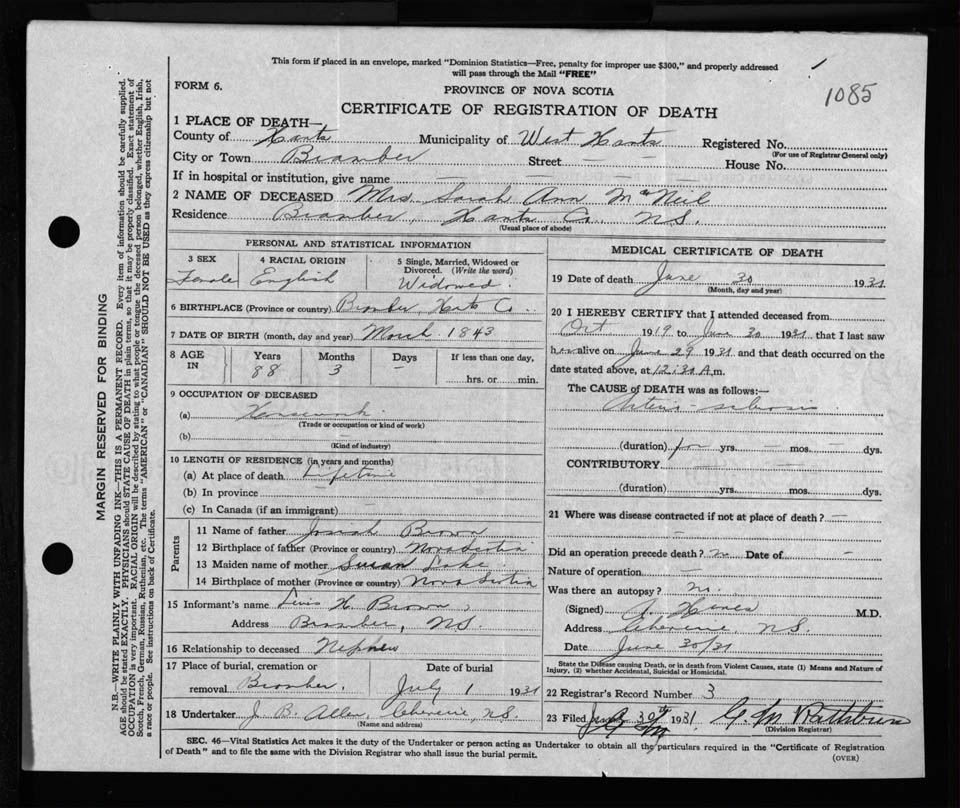 This form if placed in an envelope, marked "Dominion Statistics—Free, penalty for improper use $300," and properly addressed
will pass through the Mail "FREE"
1085
FORM 6.
PROVINCE OF NOVA SCOTIA
CERTIFICATE OF REGISTRATION OF DEATH
1 PLACE OF DEATH—
County of Hants Municipality of West Hants Registered No.
(For use of Registrar General only)
City or Town Bramber Street — — House No.
If in hospital or institution, give name — — — —
2 NAME OF DECEASED Mrs. Sarah Ann McNeil
Residence Bramber, Hants Co. N.S.
(Usual place of abode)
PERSONAL AND STATISTICAL INFORMATION
3 SEX
Female
4 RACIAL ORIGIN
English
5 Single, Married, Widowed or Divorced. (Write the word)
Widowed.
6 BIRTHPLACE (Province or country) Bramber, Hants Co.
7 DATE OF BIRTH (month, day and year) March 1843
8 AGE IN
Years 88
Months 3
Days —
If less than one day,
hrs. or min.
9 OCCUPATION OF DECEASED
(a) Housework
(Trade or occupation or kind of work)
(b) —
(Kind of industry)
10 LENGTH OF RESIDENCE (in years and months)
(a) At place of death Lifetime
(b) In province
(c) In Canada (if an immigrant) —
Parents
11 Name of father Josiah Brown
12 Birthplace of father (Province or country) Nova Scotia
13 Maiden name of mother Susan Lake
14 Birthplace of mother (Province or country) Nova Scotia
15 Informant's name Lewis H. Brown
Address Bramber, N.S.
16 Relationship to deceased Nephew
17 Place of burial, cremation or Date of burial
removal Bramber. July 1 1931
18 Undertaker J. B. Allen, Cheverie, N.S.
(Name and address)
MEDICAL CERTIFICATE OF DEATH
19 Date of death June 30 1931
(Month, day and year)
20 I HEREBY CERTIFY that I attended deceased from
Oct 1919 to June 30 1931 that I last saw
her alive on June 29 1931 and that death occurred on the
date stated above, at 12:30 A.m.
The CAUSE of DEATH was as follows:—
Arterio-sclerosis
(duration) for yrs. — mos. — dys.
CONTRIBUTORY — —
(duration) yrs. mos. dys.
21 Where was disease contracted if not at place of death?
—
Did an operation precede death? no Date of —
Nature of operation —
Was there an autopsy? no.
(Signed) M.D.
Address Cheverie, N.S.
Date June 30/31
State the Disease causing Death, or in death from Violent Causes, state (1) Means and Nature of
Injury, (2) whether Accidental, Suicidal or Homicidal.
22 Registrar's Record Number 3
23 Filed June 30th 1931 G. M. Rathbun
(Division Registrar)
SEC. 46—Vital Statistics Act makes it the duty of the Undertaker or person acting as Undertaker to obtain all the particulars required in the "Certificate of Registration
of Death" and to file the same with the Division Registrar who shall issue the burial permit.
(OVER)
MARGIN RESERVED FOR BINDING
N.B.—WRITE PLAINLY WITH UNFADING INK—THIS IS A PERMANENT RECORD. Every item of information should be carefully supplied.
AGE should be stated EXACTLY. PHYSICIANS should STATE CAUSE OF DEATH in plain terms, so that it may be properly classified. Exact statement of
OCCUPATION is very important. RACIAL ORIGIN will be described by stating to what people or tongue the deceased person belonged, whether English, Irish,
Scotch, French, German, Russian, Ruthenian, etc. The terms "AMERICAN" or "CANADIAN" SHOULD NOT BE USED as they express citizenship but not
a race or people. See instructions on back of Certificate.